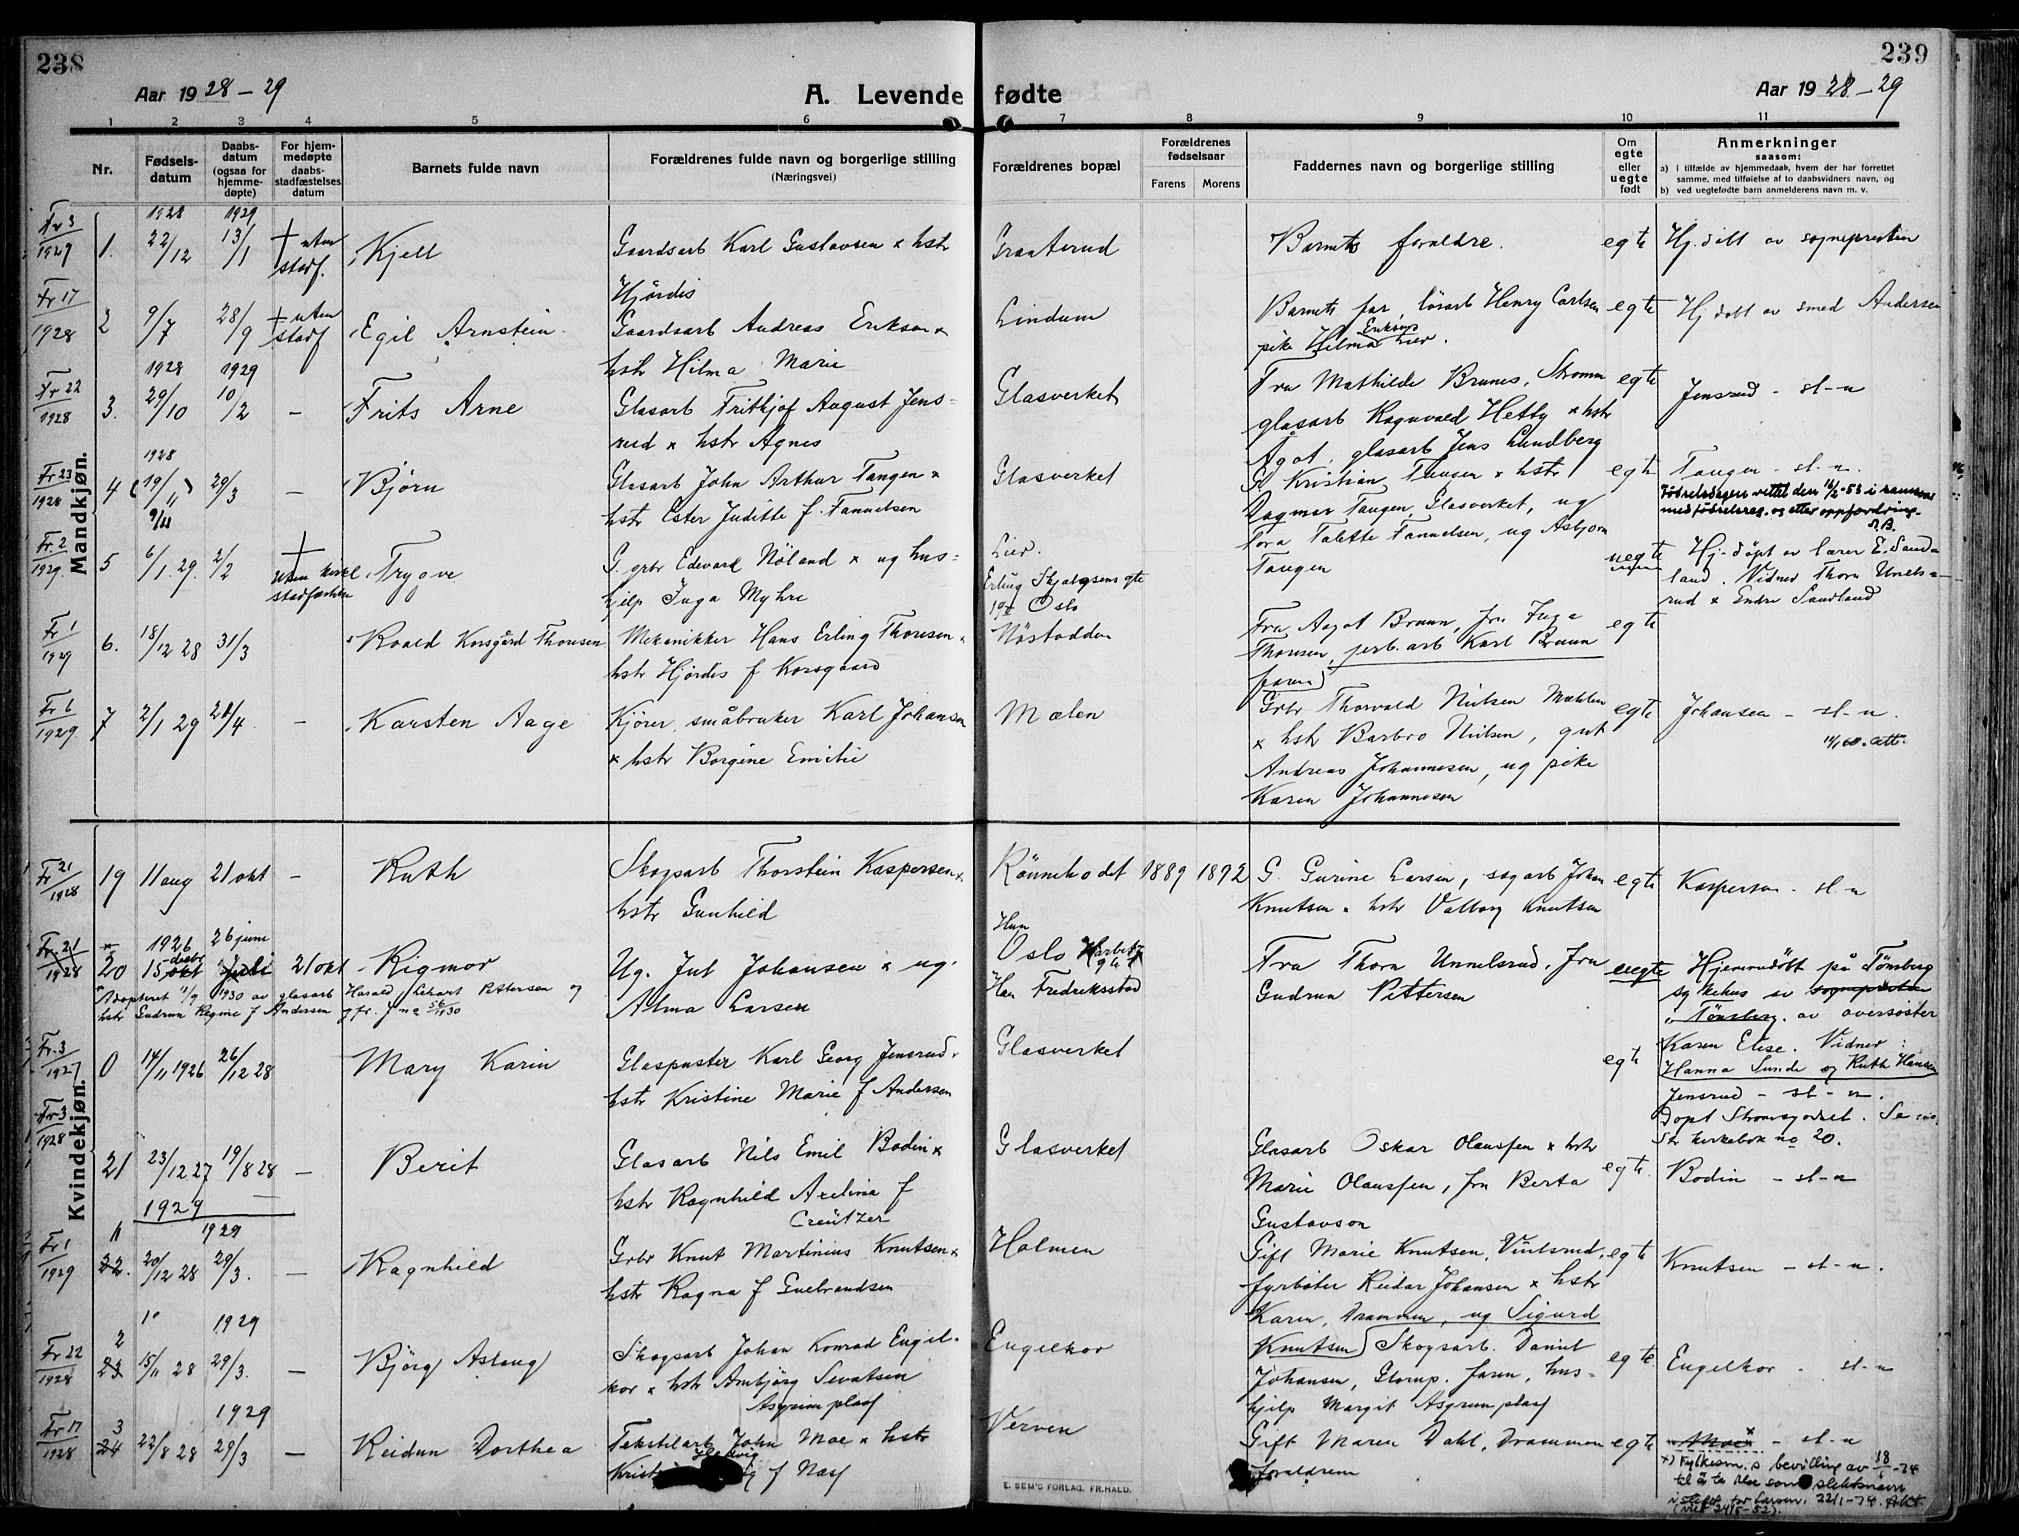 238
239
Aar 1928-29
A. Levende fødte
Aar 1928-29
1 2 3 4 5 6 7 8 9 10 11
Nr.
Fødsels-datum
Daabs-datum (ogsaa for hjemme-døpte)
For hjem-medøpte daabs-stadfæstelses datum
Barnets fulde navn
Forældrenes fulde navn og borgerlige stilling
(Næringsvei)
Forældrenes bopæl
Forældrenes fødselsaar
Farens
Morens
Faddernes navn og borgerlige stilling
Om egte eller uegte født
Anmerkninger
saasom:
a) i tilfælde av hjemmedaab, hvem der har forrettet samme, med tilføielse af to daabsvidners navn, og
b) ved uegtefødte barn anmelderens navn m. v.
Mandkjøn.
Fr 3 1929
1.
1928 22/12
1929 13/1
+ uten stadf.
Kjell
Gaardsarb Karl Gustavsen x hstr
Hjørdis
Graaterud
Barnets forældre.
egte
Hj.døbt av sognepresten
Fr 17 1928
2
9/7
28/9
+ uten stadf
Egil Arnstein
Gaardsarb Andreas Eriksen x
hstr Hilma Marie
Lindum
Barnets far, løsarb Henry Carlsen
pike Hilma Eriksen Lier.
egte
Hj døbt av smed Andersen
Fr 22 1928
3.
1928 29/10
1929 10/2
-
Frits Arne
Glasarb Frithjof August Jens-
rud x hstr Agnes
Glasverket
Fru Mathilde Brunes, Strømm
glasarb Ragnvald Hetty x hstr
Ågot, glasarb Jens Lundberg
egte
Jensrud - st-n
Fr 23 1928
4
1928 (19/11) 9/11
29/3
-
Bjørn
Glasarb John Arthur Tangen x
hstr Ester Juditte f. Fannelsen
Glasverket
G Kristian Tangen x hstr
Dagmar Tangen, Glasverket, ug
Tora Talette Fannelsen, ug Asbjørn
Tangen
egte
Tangen - st-n.
Fødselsdagen rettet den 16/2-53 i samsvar
med fødselsreg. og etter oppfordring.
Fr. 2 1929.
5
6/1.29.
2/2
+ uten kirkel stadfæstelse
Trygve
G. grbr Edevard Nöland x ug hus-
hjelp Inga Myhre
Lier.
Erling Skjalgsens gte
19 Oslo
uegte
Hj. døpt av lærer E. Sand-
land. Vidner Thora Unnels-
rud x Endre Sandland
Fr 1 1929
6.
18/12 28
31/3
Roald Korsgård Thoresen
Mekanikker Hans Erling Thoresen x
hstr Hjørdis f Korsgaard
Nøstodden
Fru Aagot Bruun, fru Inga
Thoresen, jerb. arb Karl Bruun
faren
egte
Fr 6 1929
7
2/1 29
21/4
-
Karsten Aage
Kjører, småbruker Karl Johansen
x hstr Borgine Emilie
Mælen
Grbr Thorvald Nilsen Mæhlen
x hstr Barbro Nilsen, gut
Andreas Johannesen, ug pike
Karen Johannesen
egte
Johansen - st-n.
14/1 60. att.
Kvindekjøn.
Fr 21 1928
19
11 aug
21 okt
-
Ruth
Skogsarb Thorstein Kaspersen x
hstr Gunhild
Rönneholdt
1889
1892
G. Gurine Larsen, sagarb Johan
Knutsen x hstr Valborg Knutsen
egte
Kaspersen - st-n
Fr 21 1928
20
1926 15 okt decbr
26 juni Juli
21 okt
Rigmor
Ug. Jul Johansen x ug.
Alma Larsen
Hun Oslo
Han Fredriksstad
Fru Thora Unnelsrud, fru
Gudrun Pettersen
uegte
Hjemmedöbt på Tönsberg
sykehus av sognepresten
i Tönsberg. av oversøster
Karen Elise. Vidner:
Hanna Sunde og Ruth Hansen
Adopteret 11/9 1930 av glasarb Harald Lehart Pettersen og
hstr Gudrun Regine f Andersen
Fr. 3 1927
0
14/11 1926
26/12 28
Mary Karin
Glaspuster Karl Georg Jensrud x
hstr Kristine Marie f Andersen
Glasverket
egte
Jensrud - st-n.
Døpt Strømsgodset. Se
kirkebok no 20.
Fr 3 1928
21
23/12 27
19/8 28
-
Berit
Glasarb Nils Emil Bodin x
hstr Ragnhild Axelina f
Creützer
Glasverket
Glasarb Oskar Olaussen x hstr
Marie Olaussen, fru Berta
Gustavson
egte.
Bodin - st-n
1929
Fr 1 1929
1 22.
20/12 28
1929 29/3.
-
Ragnhild
Grbr Knut Martinius Knutsen x
hstr Ragna f Gulbrandsen
Holmen
Gift Marie Knutsen,
fyrböter Reidar Johansen x hstr
Karen, Drammen, ug Sigurd
Knutsen
egte
Knutsen - st-n.
Fr 22 1928
2 23
15/11 28
1929 29/3.
-
Björg Aslaug
Skogsarb Johan Konrad Engel-
kor x hstr Ambjørg Sevatsen
Asgrimplass
Engelkor
Skogsarb. Daniel
Johansen, Glomp. faren, hus-
hjelp Margit Asgrumplass
egte
Engelkor - st-n
Fr 17 1928
3 24
22/8 28
1929 29/3
-
Reidun Dorthea
Tekstilarb John Moe x hstr
Hedvig f Næss
Verven
Gift Maren Dahl, Drammen
foraldrene
egte
Moe x - st-n
x) Fylkesm.s bevilling av 18/1-74
til å ta Moe som slektsnavn
i stedet for Larsen. 22/1-74.
E. SEM'S FORLAG. FR.HALD.